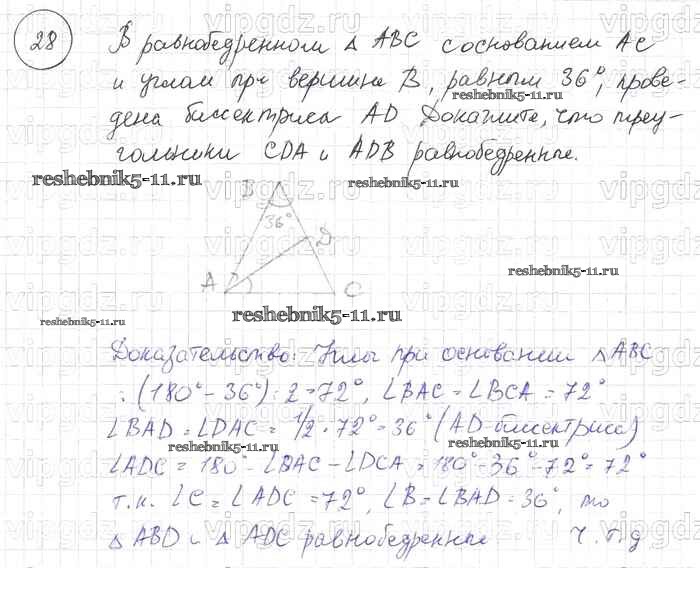 28
В равнобедренном △ ABC с основанием AC
и углом при вершине B, равным 36°, прове-
дена биссектриса AD Докажите, что треу-
гольники CDA и ADB равнобедренные.
reshebnik5-11.ru
B
36°
D
A
C
reshebnik5-11.ru
Доказательство: Углы при основании △ABC
: (180° - 36°) : 2 = 72°, ∠BAC = ∠BCA = 72°
∠BAD = ∠DAC = 1/2 · 72° = 36° (AD-биссектриса)
∠ADC = 180° - ∠BAC - ∠DCA = 180° - 36° - 72° = 72°
т.к. ∠C = ∠ADC = 72°, ∠B = ∠BAD = 36°, то
△ ABD и △ ADC равнобедренные ч.т.д